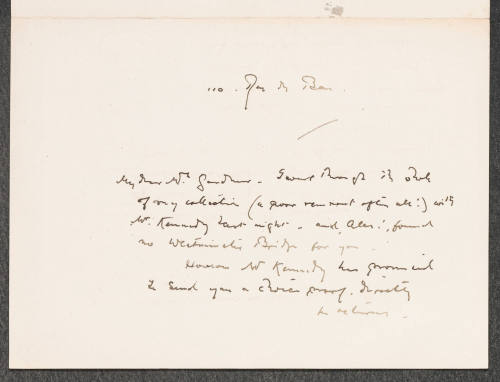 110. Rue du Bac.
My dear Mrs Gardner - I went through the whole
of my collection (a poor remnant after all!) with
Mr. Kennedy last night - and, Alas!, found
no Westminster Bridge for you.
However Mr Kennedy has promised
to send you a choice proof. directly
he returns.